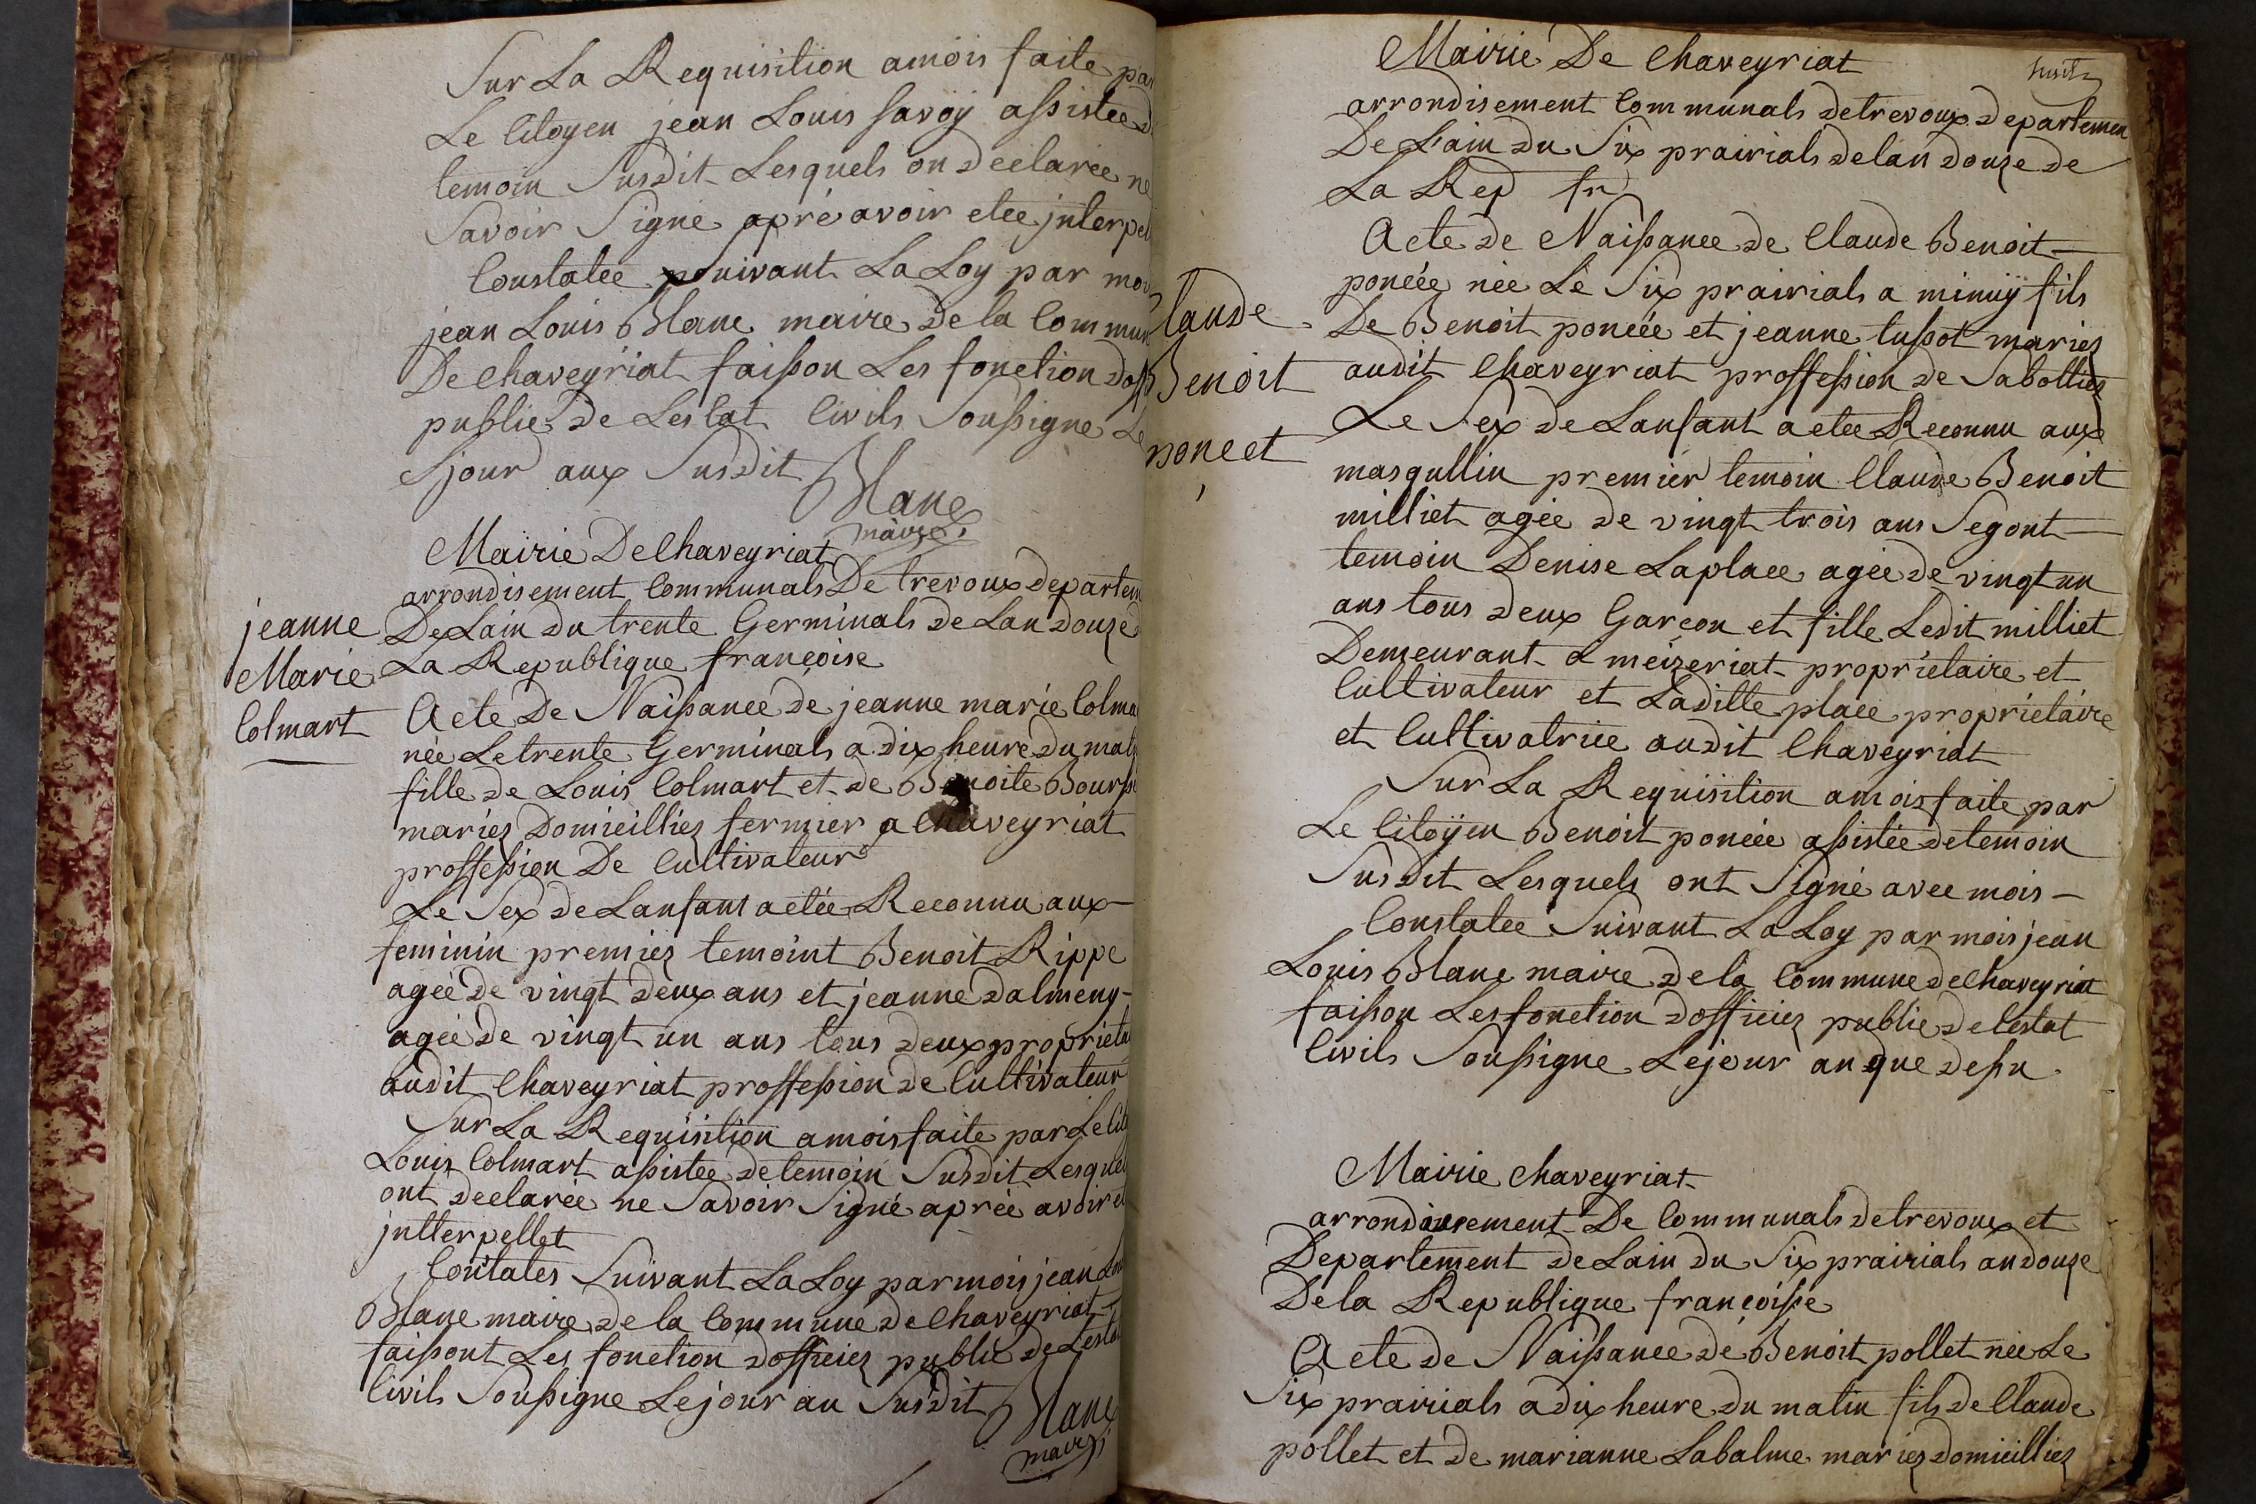 Sur La Requisition amois faite par
Le Citoyen jean Louis Savoÿ assistée d
temoin Susdit Lesquels on declarée ne
Savoir Signé apré avoir etée jnterpel
Constatée Suivant La Loy par mois
jean Louis Blanc maire de la Commun
De Chaveyriat faisson Les fonction doff
public De Lestat Civils Soussigne Le
jour aux Susdit
Blanc
maire
Mairie De Chaveyriat
arrondisement Communals De trevoux departem
De Lain du trente Germinals de Lan douze d
La Republique françoise
jeanne
Marie
Colmart
Acte De Naissance de jeanne marie Colma
née Le trente Germinals a dix heure du mat
fille de Louis Colmart et de Benoite Bourss
mariez Domicilliez fermier a Chaveyriat
proffession De Cultivateur
Le Sex de Lanfant a etée Reconnu aux
feminin premiez temoint Benoit Rippe
agée de vingt deux ans et jeanne dalmeny
agée de vingt un ans tous deux proprieta
audit Chaveyriat proffession de Cultivateur
Sur La Requisition amois faite par Le Cit
Louis Colmart assistée de temoin Susdit Lesquel
ont declarée ne Savoir Signé aprée avoir et
jnterpellet
Constatés Suivant La Loy par mois jean Lou
Blanc maire de la Commune de Chaveyriat
faissont Les fonction dofficiez public de Lestat
Civils Soussigne Le jour an Susdit
Blanc
maire
Mairie De Chaveyriat
arrondisement Communals de trevoux Departemen
De Lain du Six prairials de lan douze de
La Rep fr
Claude
Benoit
poncet
Acte de Naissance de Claude Benoit
poncée née Le Six prairials a minuÿ fils
De Benoit poncée et jeanne tussot mariez
audit Chaveyriat proffession de Sabottiez
Le Sex de Lanfant a etée Reconnu aux
masqullin premier temoin Claude Benoit
milliet agée de vingt trois ans Segont
temoin Denise Laplace agée de vingt un
ans tous deux Garçon et fille Ledit milliet
Demeurant a méizeriat proprietaire et
Cultivateur et Laditte place proprietaire
et Cultivatrice audit Chaveyriat
Sur La Requisition amois faite par
Le Citoÿen Benoit poncée assistée de temoin
Susdit Lesquels ont Signé avec mois
Constatée Suivant La Loy par mois jean
Louis Blanc maire de la Commune de Chaveyriat
faisson Les fonction dofficiez public de Lestat
Civils Soussigne Le jour an que dessu
Mairie Chaveyriat
arrondissement De Communals de trevoux et
Departement de Lain du Six prairials an douze
De la Republique françoisse
Acte de Naissance de Benoit pollet née Le
Six prairials a dix heure du matin fils de Claude
pollet et de marianne Labalme mariez domicilliez